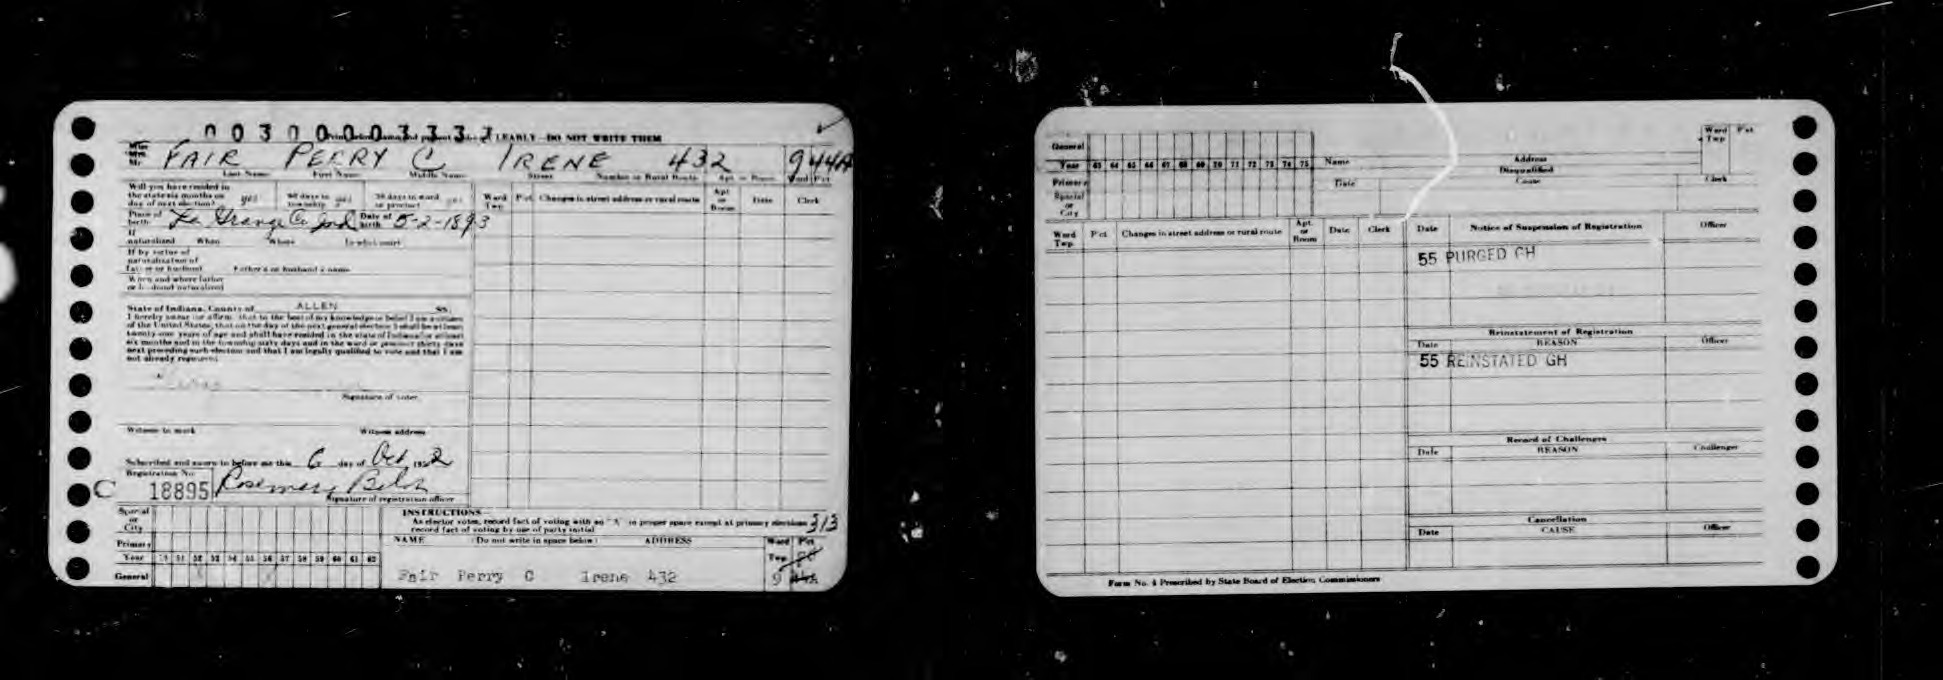 0030000333
CLEARLY - DO NOT WRITE THEM
Miss
Mrs.
Mr. FAIR PERRY C IRENE 432 9 44A
Last Name First Name Middle Name Street Number or Rural Route Apt. or Room Ward Pct.
Will you have resided in the state six months on day of next election? yes 60 days in township yes 30 days in ward or precinct yes
Place of birth La Grange Co Ind Date of birth 5-2-1893
If naturalized When Where In what court
If by virtue of naturalization of father or husband Father's or husband's name
When and where father or husband naturalized
State of Indiana, County of ALLEN SS.
I hereby swear (or affirm) that to the best of my knowledge or belief I am a citizen
of the United States, that on the day of the next general election I shall be at least
twenty-one years of age and shall have resided in the state of Indiana for at least
six months and in the township sixty days and in the ward or precinct thirty days
next preceding such election and that I am legally qualified to vote and that I am
not already registered.
Signature of voter
Witness to mark Witness address
Subscribed and sworn to before me this 6 day of Oct 1952
Registration No.
C 18895 Rosemary
Signature of registration officer
Ward Twp. Pct. Changes in street address or rural route Apt. or Room Date Clerk
Special or City
Primary
Year 51 52 53 54 55 56 57 58 59 60 61 62
General
INSTRUCTIONS
As elector votes, record fact of voting with an "X" in proper space except at primary elections 313
record fact of voting by use of party initial
NAME (Do not write in space below) ADDRESS Ward Twp. Pct.
Fair Perry C Irene 432 9 44A
General
Year 63 64 65 66 67 68 69 70 71 72 73 74 75
Primary
Special or City
Name Address Ward Twp. Pct.
Disqualified
Date Cause Clerk
Ward Twp. Pct. Changes in street address or rural route Apt. or Room Date Clerk
Date Notice of Suspension of Registration Officer
55 PURGED GH
Reinstatement of Registration
Date REASON Officer
55 REINSTATED GH
Record of Challenges
Date REASON Challenger
Cancellation
Date CAUSE Officer
Form No. 4 Prescribed by State Board of Election Commissioners